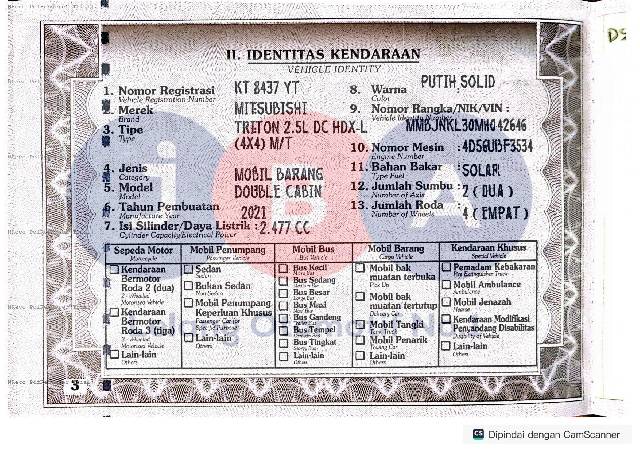 DS
II. IDENTITAS KENDARAAN
VEHICLE IDENTITY
1. Nomor Registrasi KT 8437 YT
Vehicle Registration Number
2. Merek MITSUBISHI
Brand
3. Tipe TRITON 2.5L DC HDX-L
Type (4X4) M/T
4. Jenis MOBIL BARANG
Category
5. Model DOUBLE CABIN
Model
6. Tahun Pembuatan 2021
Manufacture Year
7. Isi Silinder/Daya Listrik : 2.477 CC
Cylinder Capacity/Electrical Power
8. Warna PUTIH SOLID
Color
9. Nomor Rangka/NIK/VIN :
Vehicle Identity Number
MMBJNKL30MH042646
10. Nomor Mesin : 4D56UBF3534
Engine Number
11. Bahan Bakar : SOLAR
Type Fuel
12. Jumlah Sumbu : 2 ( DUA )
Number of Axis
13. Jumlah Roda : 4 ( EMPAT )
Number of Wheels
Sepeda Motor
Motorcycle
Kendaraan
Bermotor
Roda 2 (dua)
2 - Wheeled
Motorized Vehicle
Kendaraan
Bermotor
Roda 3 (tiga)
3 - Wheeled
Motorized Vehicle
Lain-lain
Others
Mobil Penumpang
Passenger Vehicle
Sedan
Sedan
Bukan Sedan
Non Sedan
Mobil Penumpang
Keperluan Khusus
Passenger Car for
Special Purpose
Lain-lain
Others
Mobil Bus
Bus Vehicle
Bus Kecil
Bus Sedang
Bus Besar
Bus Maxi
Bus Gandeng
Bus Tempel
Bus Tingkat
Lain-lain
Others
Mobil Barang
Cargo Vehicle
Mobil bak
muatan terbuka
Pick Up
Mobil bak
muatan tertutup
Delivery Van
Mobil Tangki
Tank Truck
Mobil Penarik
Towing Car
Lain-lain
Others
Kendaraan Khusus
Special Vehicle
Pemadam Kebakaran
Mobil Ambulance
Ambulance
Mobil Jenazah
Hearse
Kendaraan Modifikasi
Penyandang Disabilitas
Lain-lain
Others
3
iBA
CS Dipindai dengan CamScanner